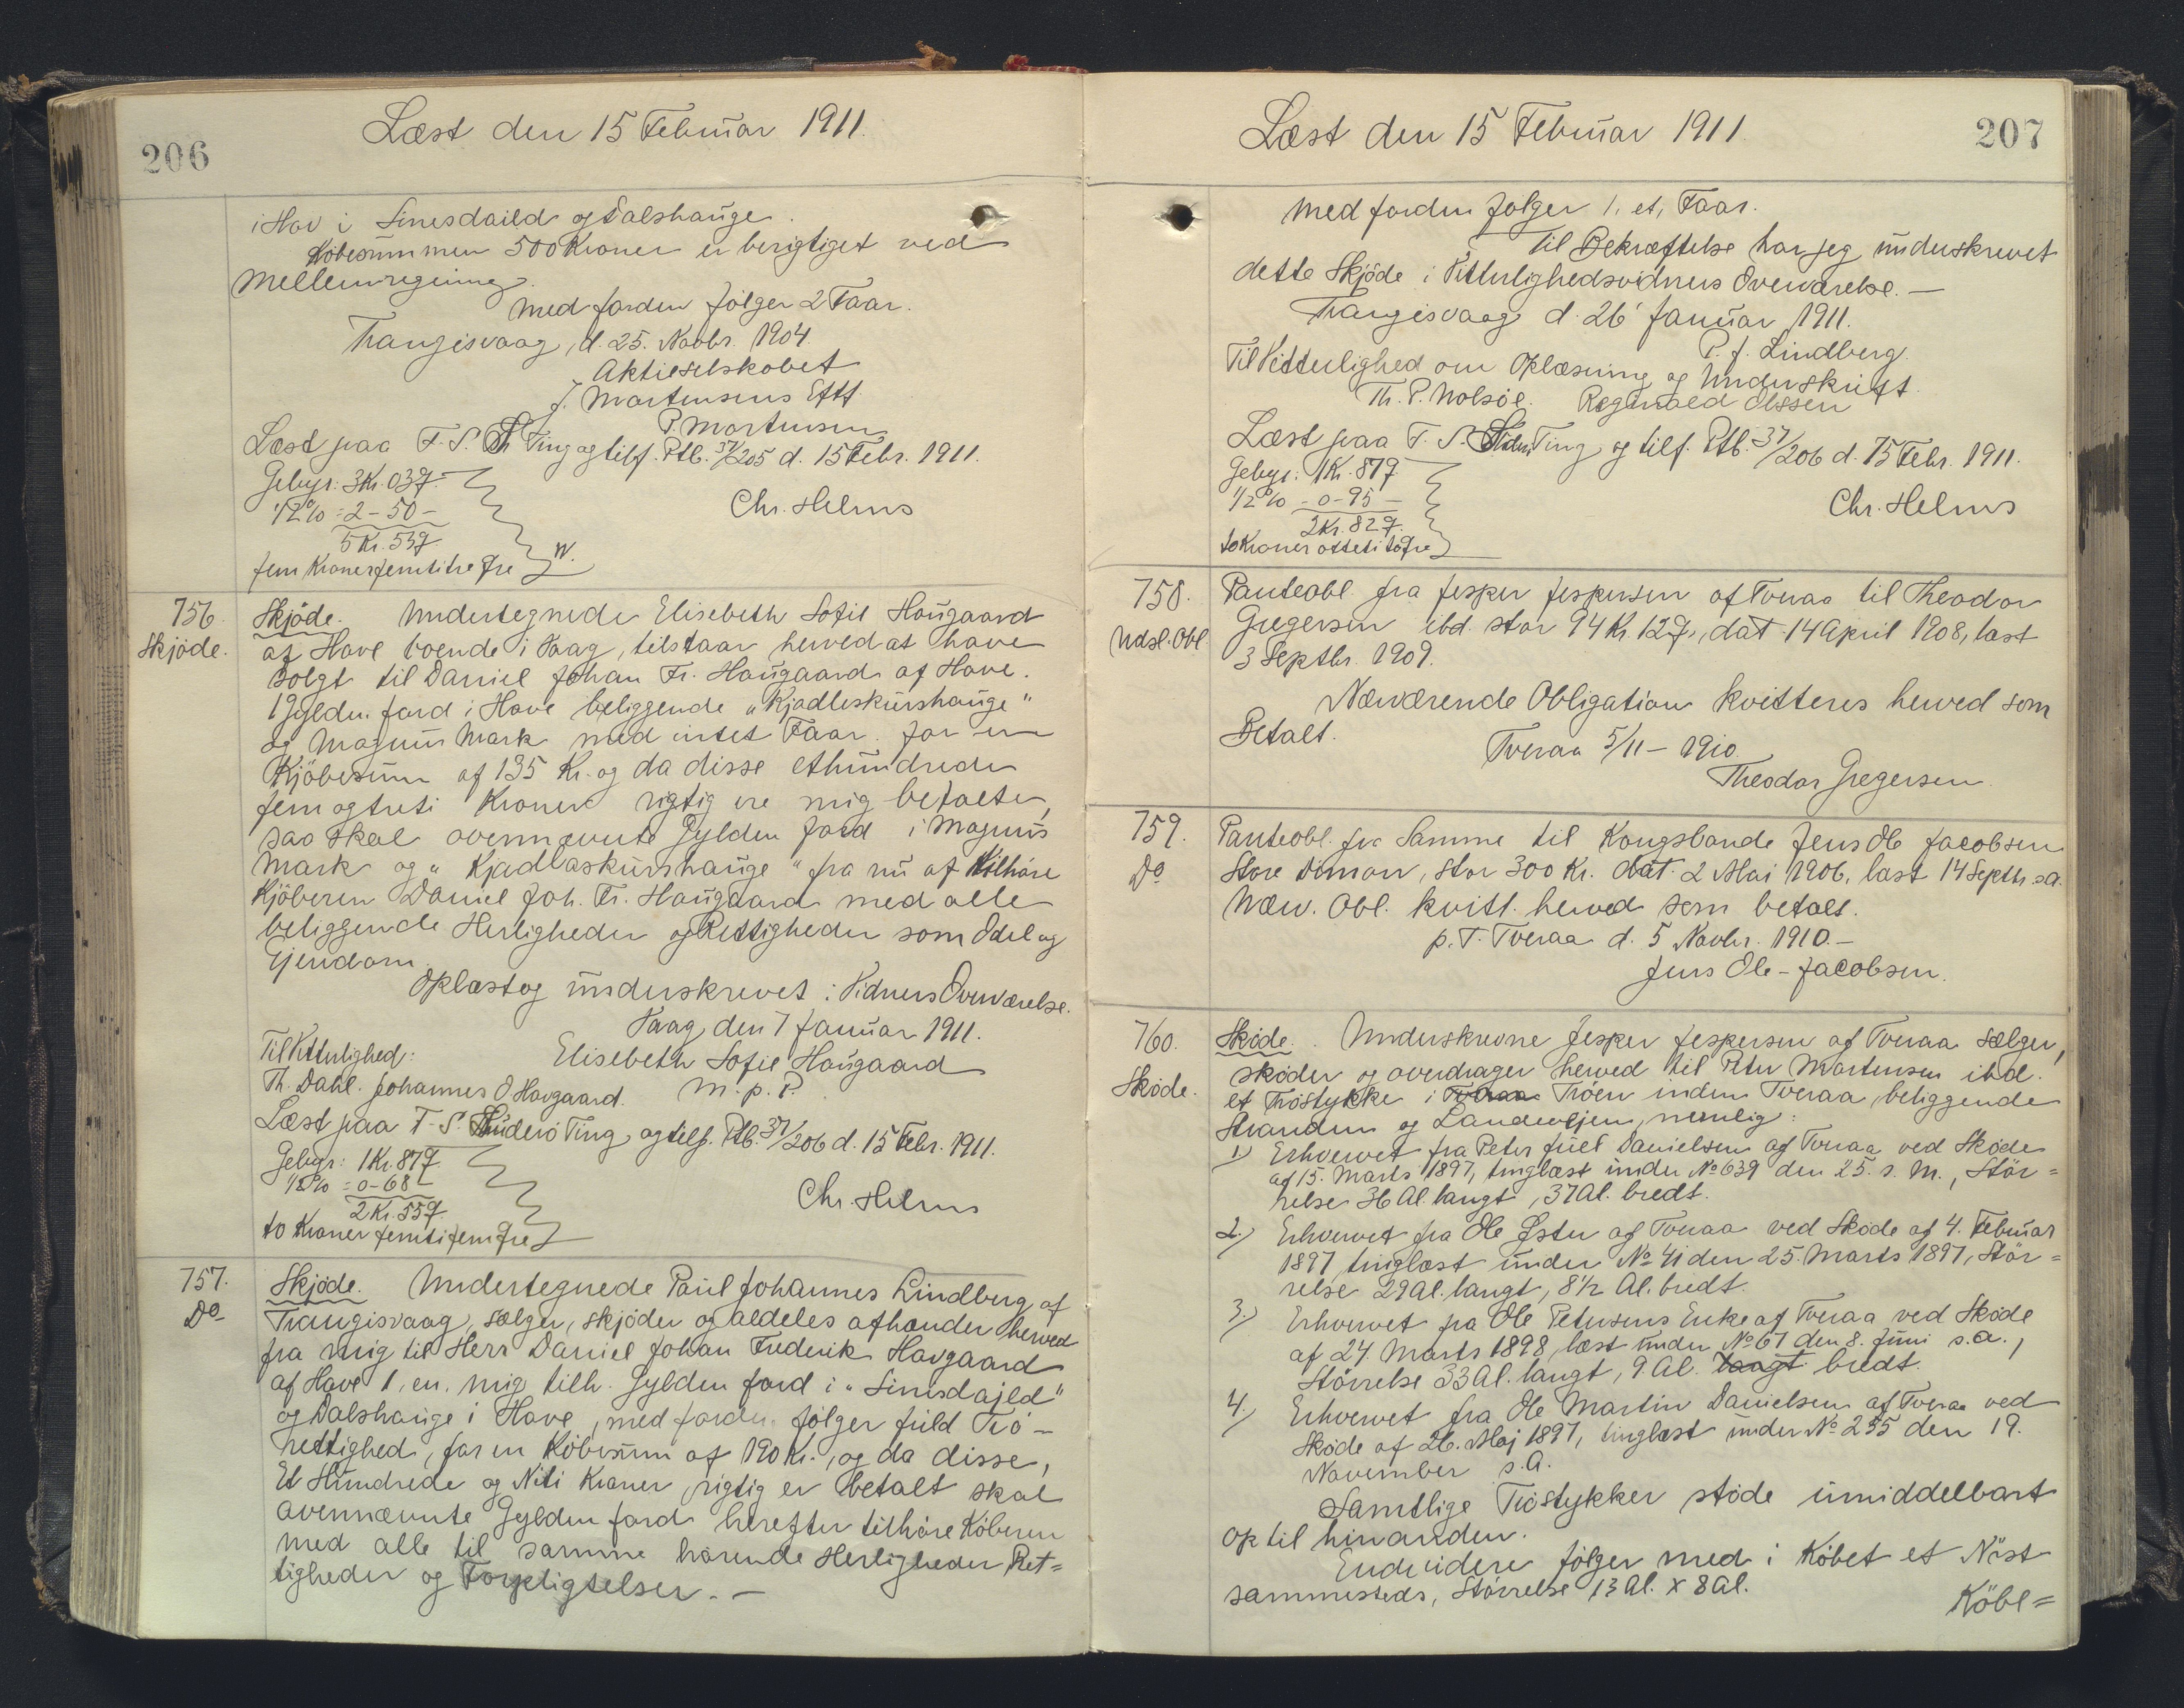 206
Læst den 15 Februar 1911.
i Hov i Linesdaild og Dalshauge.
Köbesummen 500 Kroner er berigtiget ved
Mellemregning.
Med Jorden følger 2 Faar.
Trangisvaag, d. 25. Novbr. 1904.
Aktieselskabet
J. Mortensens Eftf.
P. Mortensen
Læst paa F. S. Ting og tilf. Ptb. 37/205 d. 15 Febr. 1911.
Gebyr: 3 Kr. 03 Ø.
1/2 % = 2 - 50 -
5 Kr. 53 Ø
fem Kroner femtitre Øre
Chr. Helms
756.
Skjøde.
Skjøde. Undertegnede Elisebeth Sofie Haugaard
af Hove boende i Vaag, tilstaar herved at have
solgt til Daniel Johan Fr. Haugaard af Hove.
1 Gylden Jord i Hove beliggende "Kjadleskurshauge"
og Magnus Mark med intet Faar for en
Kjöbesum af 135 Kr. og da disse ethundrede
fem og treti Kroner rigtig ere mig betalte,
saa skal ovennævnte Gylden Jord i Magnus
Mark og "Kjadlaskurshauge" fra nu af tilhöre
Kjöberen Daniel Joh. Fr. Haugaard med alle
beliggende Herligheder og Rettigheder som Odel og
Ejendom.
Oplæst og underskrevet i Vidners Overværelse.
Vaag den 7 Januar 1911.
Til Vitterlighed:
Elisebeth Sofie Haugaard
Th. Dahl. Johannes O Havgaard. m. p. P.
Læst paa F. S. Suderö Ting og tilf. Ptb. 37/206 d. 15 Febr. 1911.
Gebyr: 1 Kr. 87 Ø
1/2 % = 0 - 68 -
2 Kr. 55 Ø
to Kroner femtifem Øre
Chr. Helms
757.
Do
Skjøde. Undertegnede Paul Johannes Lindberg af
Trangisvaag, sælger, skjøder og aldeles afhænder herved
fra mig til Herr Daniel Johan Frederik Havgaard
af Hove 1, en, mig tilh. Gylden Jord i "Linisdajld"
og Dalshauge i Hove, med Jorden følger fuld Trö-
rettighed, for en Köbesum af 190 Kr., og da disse,
Et Hundrede og Niti Kroner, rigtig er betalt skal
ovennævnte Gylden Jord herefter tilhöre Köberen
med alle til samme hörende Herligheder Ret=
tigheder og Forpligtelser. -
207
Læst den 15 Februar 1911.
Med Jorden følger 1, et, Faar.
Til Bekræftelse har jeg underskrevet
dette Skjøde i Vitterlighedsvidners Overværelse. -
Trangisvaag d. 26 Januar 1911.
P. J. Lindberg.
Til Vitterlighed om Oplæsning og Underskrift.
Th. P. Nolsöe. Reginald Olssen
Læst paa F. S. Suderö Ting og tilf. Ptb. 37/206 d. 15 Febr. 1911.
Gebyr: 1 Kr. 87 Ø
1/2 % - 0 - 95 -
2 Kr. 82 Ø.
to Kroner ottetito Øre
Chr. Helms
758.
Udsl. Obl
Panteobl. fra Jesper Jespersen af Tveraa til Theodor
Gregersen ibd. stor 94 Kr. 12 Ø., dat. 14 April 1908, læst
3 Septbr. 1909.
Nærværende Obligation kvitteres herved som
Betalt.
Tveraa 5/11 - 1910.
Theodor Gregersen
759.
Do
Panteobl. fra Samme til Kongsbonde Jens Ole Jacobsen
Store Dimon, stor 300 Kr. dat. 2 Mai 1906, læst 14 Septbr. s.A.
Nærv. Obl. kvitt. herved som betalt.
p. T. Tveraa d. 5 Novbr. 1910. -
Jens Ole - Jacobsen.
760.
Skøde.
Skøde. Underskrevne Jesper Jespersen af Tveraa sælger,
skøder og overdrager herved til Peter Mortensen ibd.
et Tröstykke i Tveraa Tröen inden Tveraa, beliggende
Stranden og Landevejen, nemlig:
1) Erhvervet fra Peter Juel Danielsen af Tveraa ved Skøde
af 15. Marts 1897, tinglæst under No 639 den 25. s. M., Stör=
relse 36 Al. langt, 37 Al. bredt.
2.) Erhvervet fra Ole Øster af Tveraa ved Skøde af 4. Februar
1897, tinglæst under No 41 den 25. Marts 1897, Stör=
relse 29 Al. langt, 8 1/2 Al. bredt.
3.) Erhvervet fra Ole Petersens Enke af Tveraa ved Skøde
af 24. Marts 1898, læst under No 61 den 8. Juni s.a.,
Störrelse 33 Al. langt, 9 Al. langt bredt.
4.) Erhvervet fra Ole Martin Danielsen af Tveraa ved
Skøde af 26. Maj 1897, tinglæst under No 255 den 19.
November s.A.
Samtlige Tröstykker støde umiddelbart
op til hinanden.
Endvidere følger med i Købet et Nöst
sammesteds, Störrelse 13 Al. x 8 Al.
Købe=